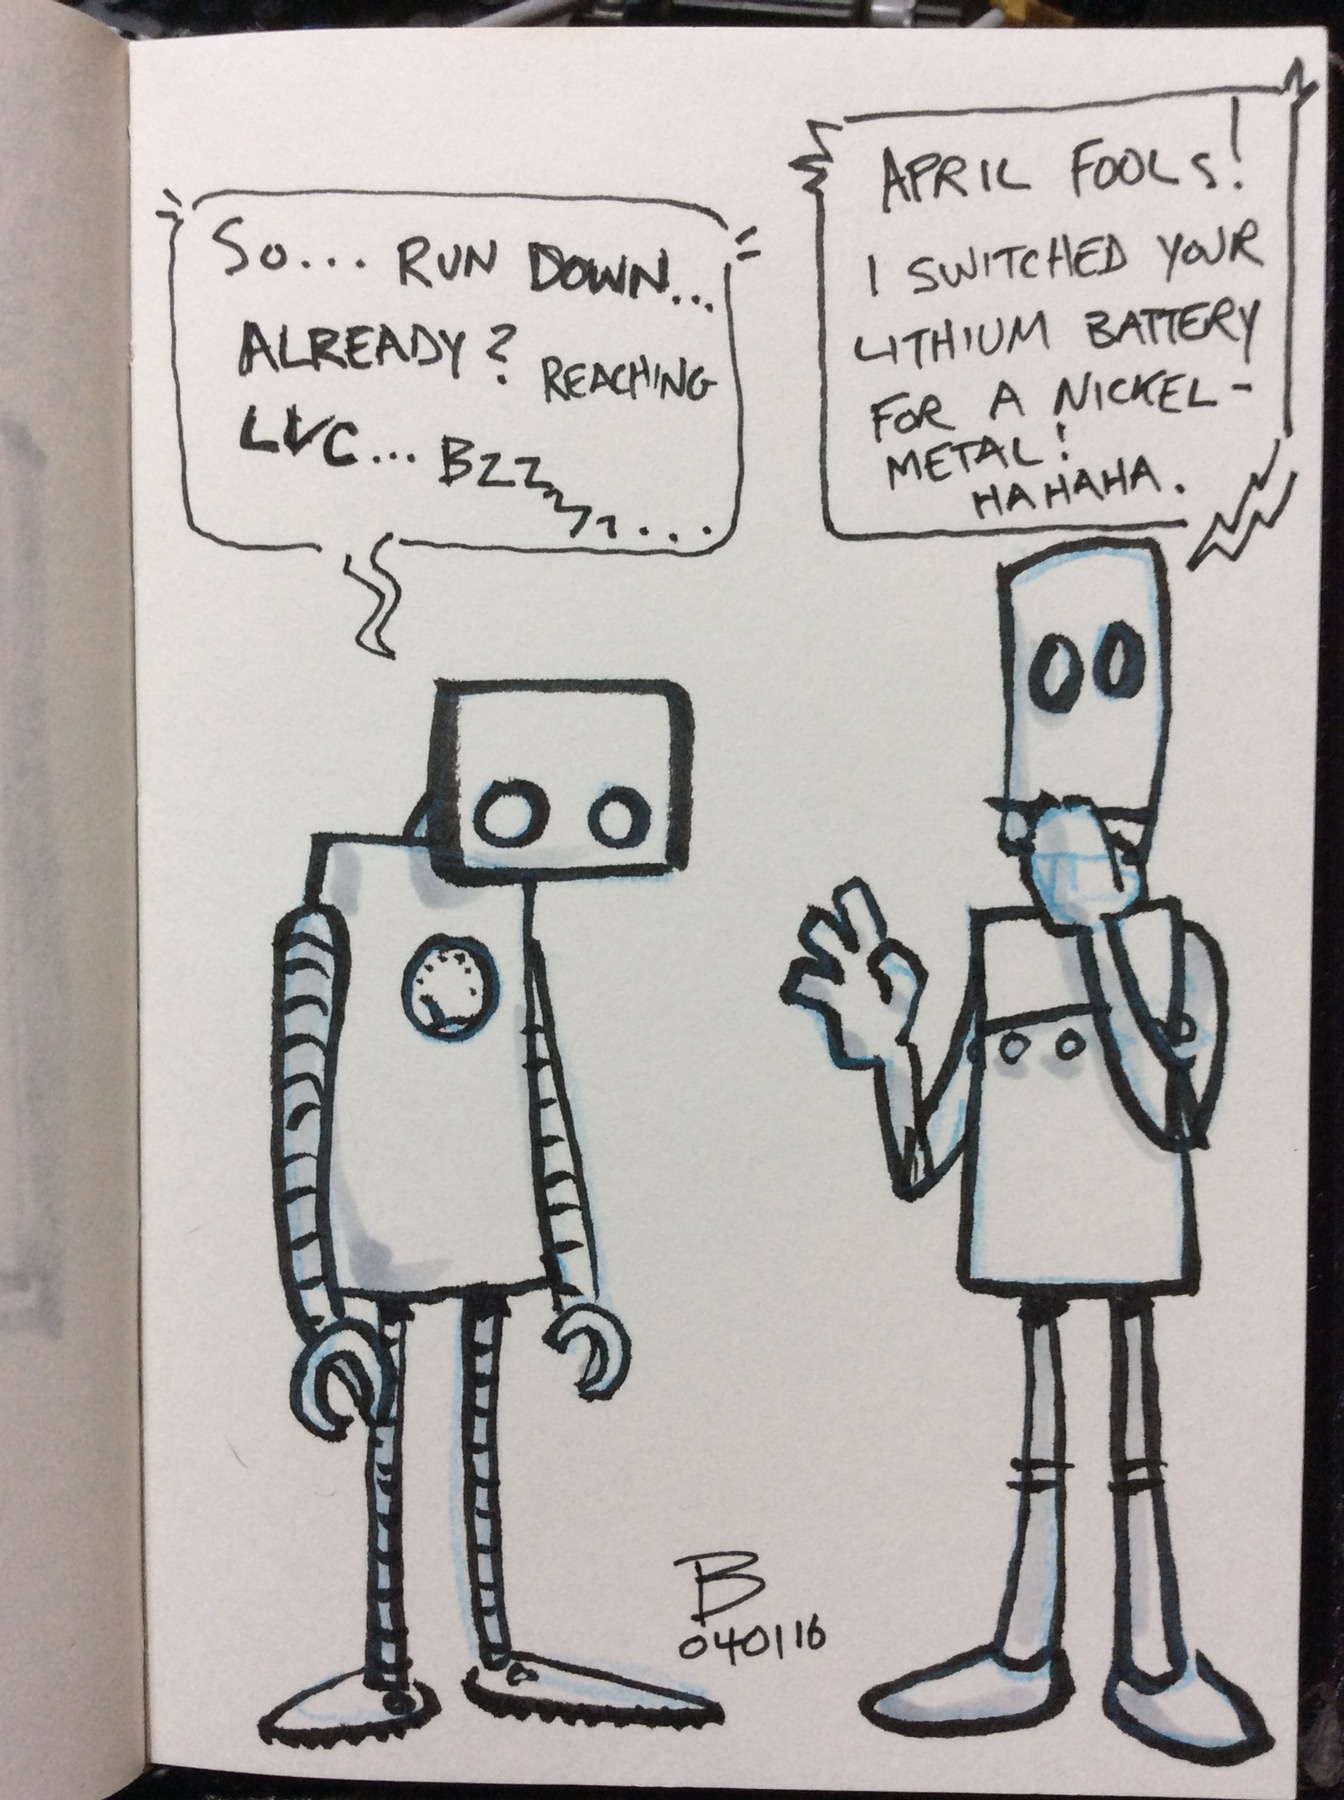 SO... RUN DOWN...
ALREADY? REACHING
LVC... BZZzzz....
APRIL FOOLS!
I SWITCHED YOUR
LITHIUM BATTERY
FOR A NICKEL-
METAL!
HAHAHA.
B
040116